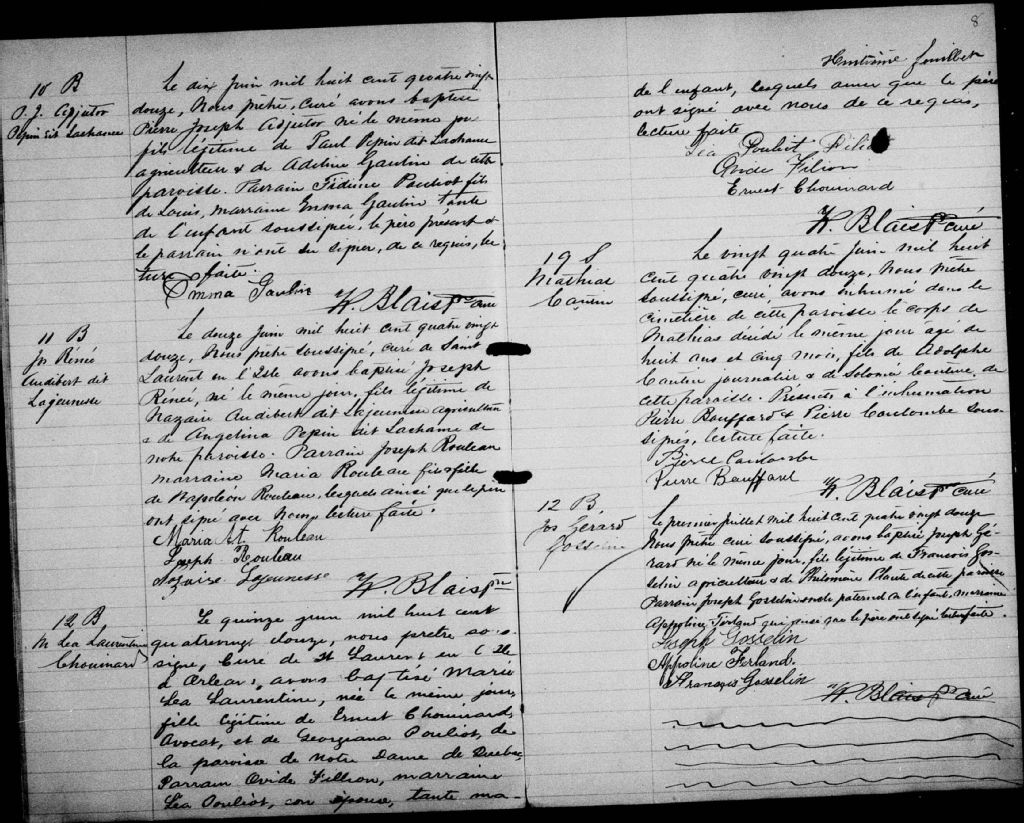 10 B
P. J. Adjutor
Pepin dit Lachance
Le dix Juin mil huit cent quatre vingt
douze, Nous prêtre, curé avons baptisé
Pierre Joseph Adjutor né le même jour
fils légitime de Paul Pepin dit Lachance
agriculteur & de Adeline Gaulin de cette
paroisse. Parrain Fidime Pouliot fils
de Louis, marraine Emma Gaulin tante
de l'enfant soussignée, le père présent &
le parrain n'ont su signer, de ce requis, lec
ture faite.
Emma Gaulin
Blais ptre curé
11 B
Js Réneé
Audibert dit
Lajeunesse
Le douze Juin mil huit cent quatre vingt
douze, Nous prêtre soussigné, curé de Saint
Laurent en l'Isle avons baptisé Joseph
Reneé, né le même jour, fils légitime de
Nazaire Audibert dit Lajeunesse agriculteur
& de Angelina Pepin dit Lachance de
notre paroisse. Parrain Joseph Rouleau
marraine Maria Rouleau fils & fille
de Napoléon Rouleau, lesquels ainsi que le père
ont signé avec Nous, lecture faite.
Maria Rouleau
Joseph Rouleau
Nazaire Lajeunesse
Blais ptre
12 B
M. Lea Laurentine
Chouinard
Le quinze juin mil huit cent
quatrevingt douze, nous prêtre sous-
signé, Curé de St Laurent en l'Ile
d'Orleans, avons baptisé Marie
Lea Laurentine, née le même jour,
fille légitime de Ernest Chouinard,
Avocat, et de Georgeana Pouliot, de
la paroisse de Notre Dame de Quebec,
Parrain Ovide Fillion, marraine
Léa Pouliot, son épouse, tante ma-
8
Huitième feuillet
de l'enfant, lesquels ainsi que le père
ont signé avec nous de ce requis,
lecture faite
Léa Pouliot Filion
Ovide Filion
Ernest Chouinard
Blais ptre curé
19 S
Mathias
Cantin
Le vingt quatre Juin mil huit
cent quatre vingt douze, Nous prêtre
soussigné, curé, avons inhumé dans le
cimetière de cette paroisse le corps de
Mathias décédé le même jour agé de
huit ans et cinq mois, fils de Adolphe
Cantin journalier & de Couture, de
cette paroisse. Présents à l'inhumation
Pierre Bouffard & Pierre Coulombe sous-
signés, lecture faite.
Pierre Coulombe
Pierre Bouffard
Blais ptre curé
12 B.
Jos Gérard
Gosselin
Le premier Juillet mil huit cent quatre vingt douze
Nous prêtre curé soussigné, avons baptisé Joseph Gé-
rard né le même jour, fils légitime de Francois Gos-
selin agriculteur & de Philomene Plante de cette paroisse
Parrain Joseph Gosselin oncle paternel de l'enfant, marraine
Appoline Ferland qui ainsi que le père ont signé lecture faite.
Joseph Gosselin
Appoline Ferland.
François Gosselin
Blais ptre curé